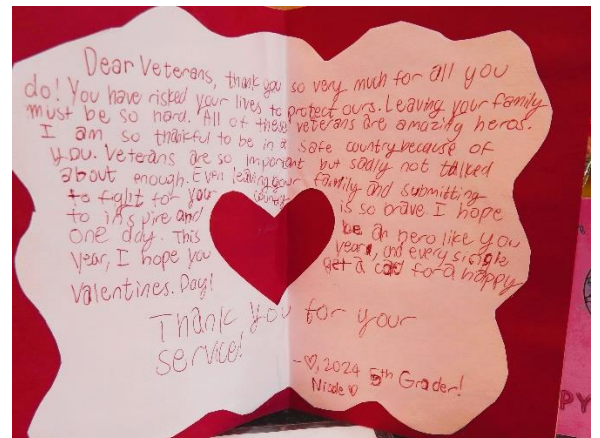 Dear Veterans, thank you so very much for all you
do! You have risked your lives to protect ours. Leaving your family
must be so hard. All of these veterans are amazing heros.
I am so thankful to be in a safe country because of
you. Veterans are so important but sadly not talked
about enough. Even leaving your family and submitting
to fight for your country is so brave I hope
to inspire and be an hero like you
one day. This year, and every single
year, I hope you get a card for a happy
Valentines. Day!
Thank you for your
service!
-♡, 2024 5th Grader!
Nicole ♡
PY